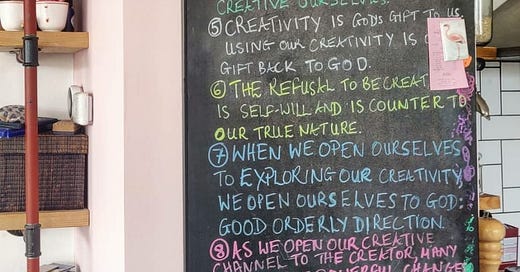 CREATIVE OURSELVES.
⑤ CREATIVITY IS GODS GIFT TO US.
USING OUR CREATIVITY IS
GIFT BACK TO GOD.
⑥ THE REFUSAL TO BE CREAT
IS SELF-WILL AND IS COUNTER TO
OUR TRUE NATURE.
⑦ WHEN WE OPEN OURSELVES
TO EXPLORING OUR CREATIVITY,
WE OPEN OURSELVES TO GOD:
GOOD ORDERLY DIRECTION.
⑧ AS WE OPEN OUR CREATIVE
CHANNEL TO THE CREATOR, MANY
CHANGE